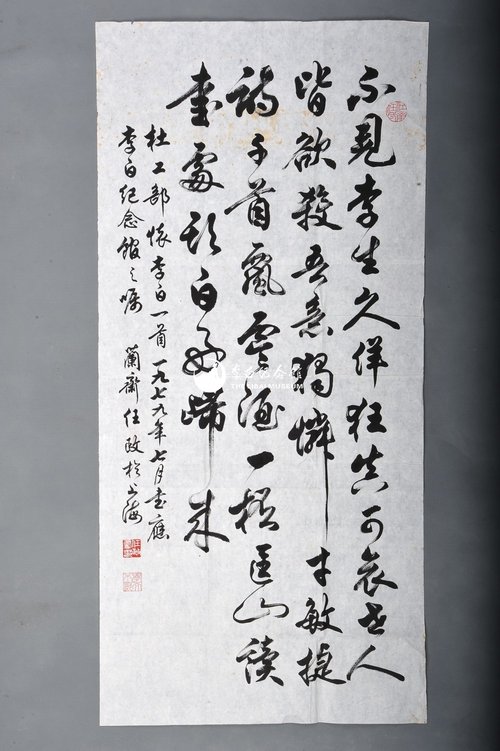 不見李生久佯狂真可哀世人
皆欲殺吾意獨憐才敏捷
詩千首飄零酒一杯匡山讀
書處頭白好歸來
杜工部懷李白一首一九七九年七月書應
李白紀念館之囑 蘭齋任政於上海
李白纪念馆
THE LIBAI MUSEUM